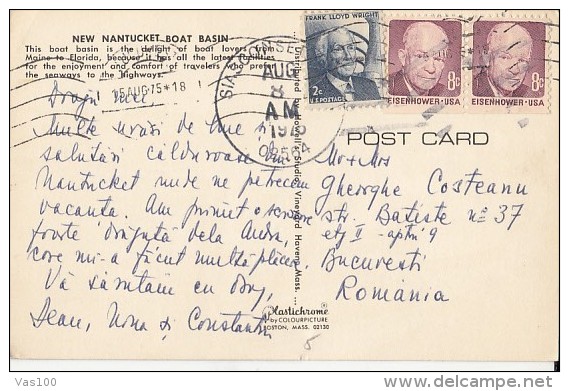 NEW NANTUCKET BOAT BASIN
This boat basin is the delight of boat lovers from
Maine to Florida, because it has all the latest facilities
for the enjoyment and comfort of travelers who prefer
the seaways to the highways.
15.AUG.75*18
SIASCONSET
AUG
8
A M
1975
02564
FRANK LLOYD WRIGHT
2c
U.S. POSTAGE
8c
EISENHOWER·USA
8c
EISENHOWER·USA
POST CARD
Dragii
Multe urări de bine și
salutări călduroase din
Nantucket unde ne petrecem
vacanța. Am primit o scrisoare
foarte drăguță dela
care mi-a făcut multă plăcere.
Vă sărutăm cu dor,
Jean, Nona și Constantin
Mr & Mrs
Gheorghe Costeanu
str. Batiste nº 37
etj II - apt. 9
București
Romania
Distributed by Studio Vineyard Haven, Mass.
Plastichrome®
by COLOURPICTURE
BOSTON, MASS. 02130
5
Vas100
DELCAMPE.NET